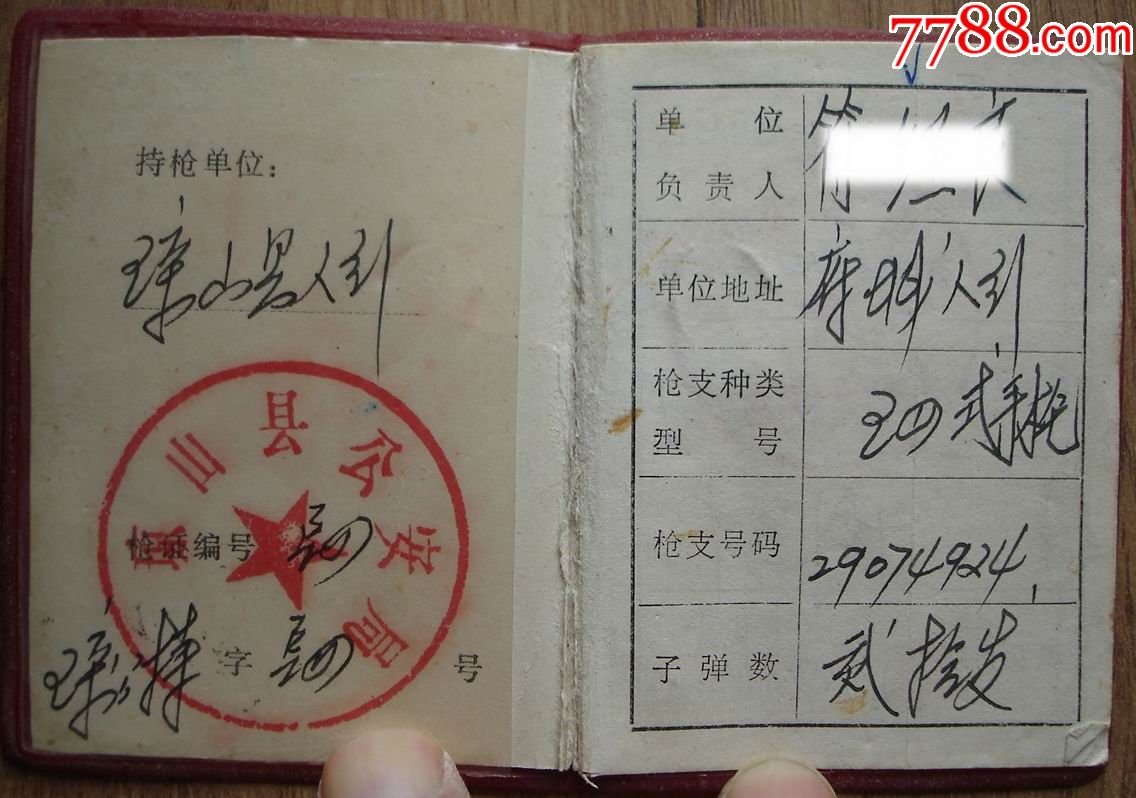 7788.com
持枪单位:
琼山县人引
琼山县公安局
枪证编号 044
琼 字 号
单位
负责人
单位地址
府城 人引
枪支种类
型号
五四式手枪
枪支号码
29074924
子弹数
贰拾发